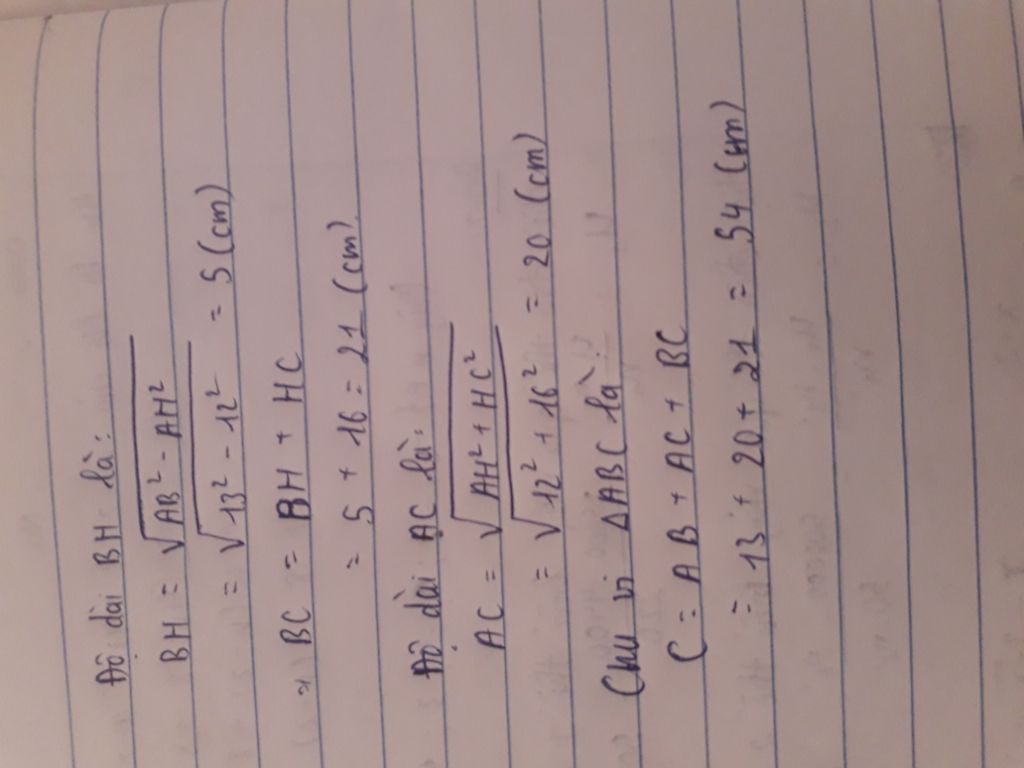 Độ dài BH là:
BH = √AB² - AH²
= √13² - 12² = 5 (cm)
=> BC = BH + HC
= 5 + 16 = 21 (cm)
Độ dài AC là:
AC = √AH² + HC²
= √12² + 16² = 20 (cm)
Chu vi ΔABC là:
C = AB + AC + BC
= 13 + 20 + 21 = 54 (cm)